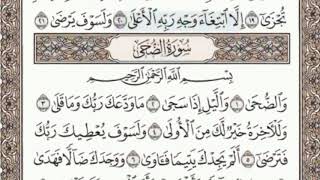 تُجْزَىٰ ١٩ إِلَّا ٱبْتِغَآءَ وَجْهِ رَبِّهِ ٱلْأَعْلَىٰ ٢٠ وَلَسَوْفَ يَرْضَىٰ ٢١
سُورَةُ الضُّحَىٰ
بِسْمِ ٱللَّهِ ٱلرَّحْمَٰنِ ٱلرَّحِيمِ
وَٱلضُّحَىٰ ١ وَٱلَّيْلِ إِذَا سَجَىٰ ٢ مَا وَدَّعَكَ رَبُّكَ وَمَا قَلَىٰ ٣
وَلَلْءَاخِرَةُ خَيْرٌ لَّكَ مِنَ ٱلْأُولَىٰ ٤ وَلَسَوْفَ يُعْطِيكَ رَبُّكَ
فَتَرْضَىٰ ٥ أَلَمْ يَجِدْكَ يَتِيمًا فَـَٔاوَىٰ ٦ وَوَجَدَكَ ضَآلًّا فَهَدَىٰ